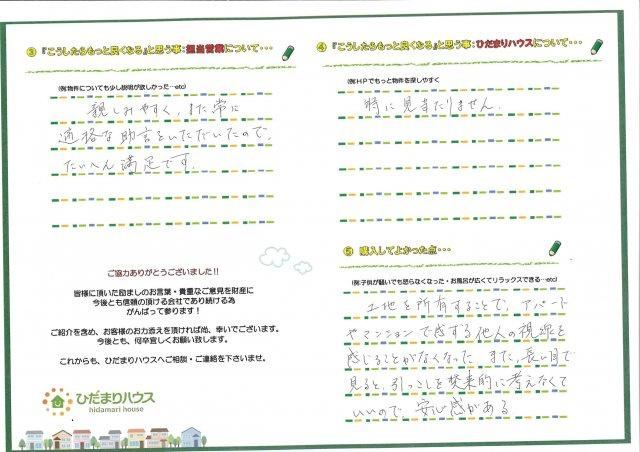 ③『こうしたらもっと良くなる』と思う事:担当営業について・・・
(例:物件についても少し説明が欲しかった…etc)
親しみやすく、また常に
適格な助言をいただいたので、
たいへん満足です。
ご協力ありがとうございました!!
皆様に頂いた励ましのお言葉・貴重なご意見を財産に
今後とも信頼の頂ける会社であり続ける為
がんばって参ります!
ご紹介を含め、お客様のお力添えを頂ければ尚、幸いでございます。
今後とも、何卒宜しくお願い致します。
これからも、ひだまりハウスへご相談・ご連絡を下さいませ。
ひだまりハウス
hidamari house
④『こうしたらもっと良くなる』と思う事:ひだまりハウスについて・・・
(例:HPでもっと物件を探しやすく
特に見当たりません。
⑤ 購入してよかった点・・・
(例:子供が騒いでも怒らなくなった・お風呂が広くてリラックスできる…etc)
土地を所有することで、アパート
やマンションで感ずる他人の視線を
感じることがなくなった。また、長い目で
見ると、引っこしを将来的に考えなくて
いいので、安心感がある